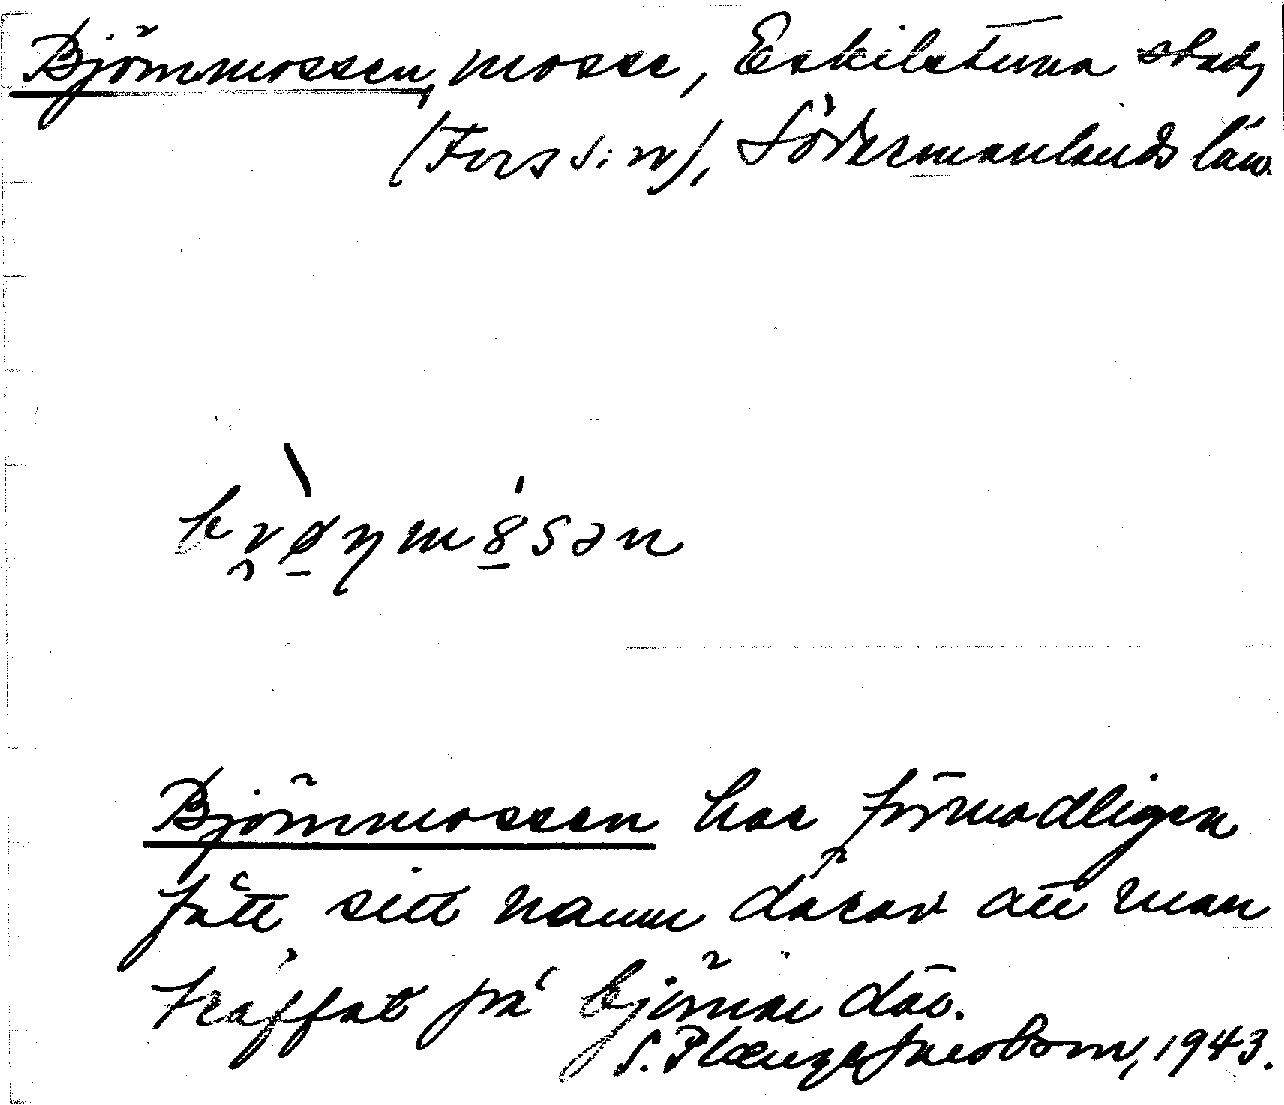 Björnmossen, mosse, Eskilstuna stad,
(Fors s:n), Södermanlands län.
Björnmossen har förmodligen
fått sitt namn därav att man
träffat på björnar där.
S. 1943.